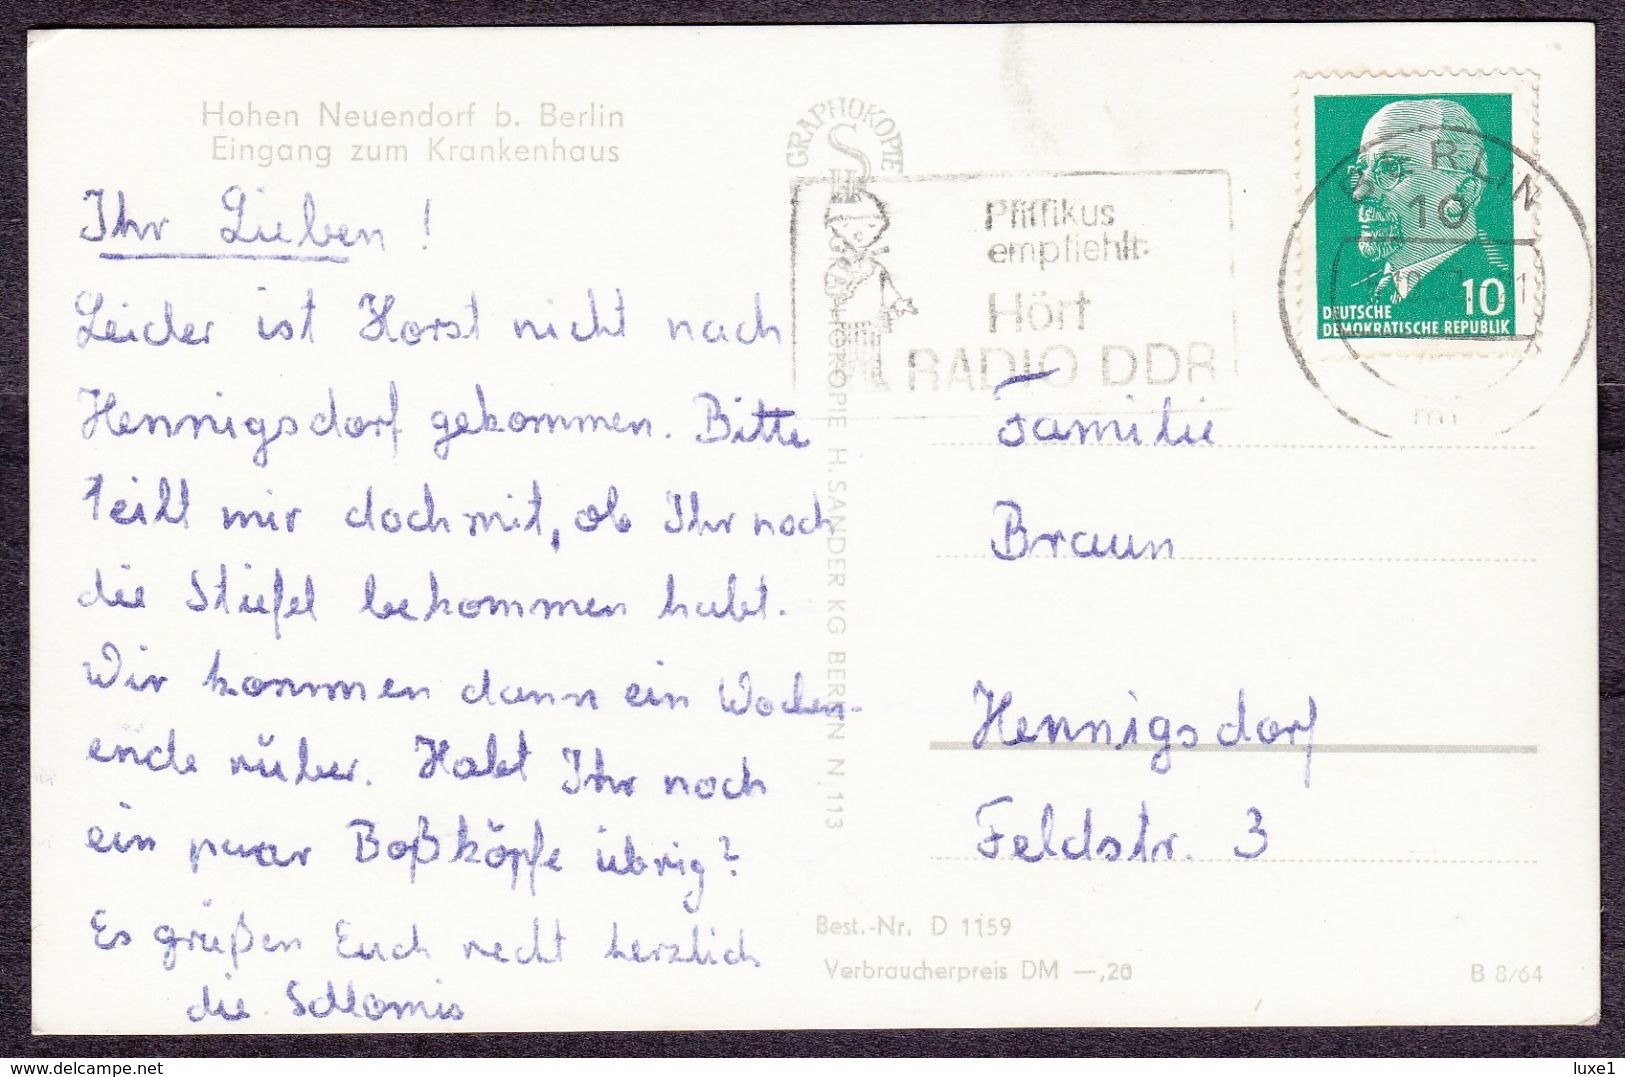 Hohen Neuendorf b. Berlin
Eingang zum Krankenhaus
Ihr Lieben!
Leider ist Horst nicht nach
Hennigsdorf gekommen. Bitte
teilt mir doch mit, ob Ihr noch
die Stiefel bekommen habt.
Wir kommen dann ein Wochen-
ende rüber. Habt Ihr noch
ein paar Boßköpfe übrig?
Es grüßen Euch recht herzlich
die Schlomis
GRAPHOKOPIE
GRAPHOKOPIE H. SANDER KG BERLIN N,113
Pfiffikus
empfiehlt:
Hört
RADIO DDR
BERLIN
10
10
DEUTSCHE
DEMOKRATISCHE REPUBLIK
Familie
Braun
Hennigsdorf
Feldstr. 3
Best.-Nr. D 1159
Verbraucherpreis DM —,20
B 8/64
delcampe.net
luxe1